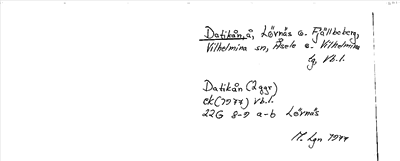 Datikån, å, Lövnäs o. Fjällboberg,
Vilhelmina sn, Åsele o. Vilhelmina
lg, Vb.l.
Datikån (2 ggr)
ek (1977) Vb.l.
22G 8-9 a-b Lövnäs
M. Lgn 1977